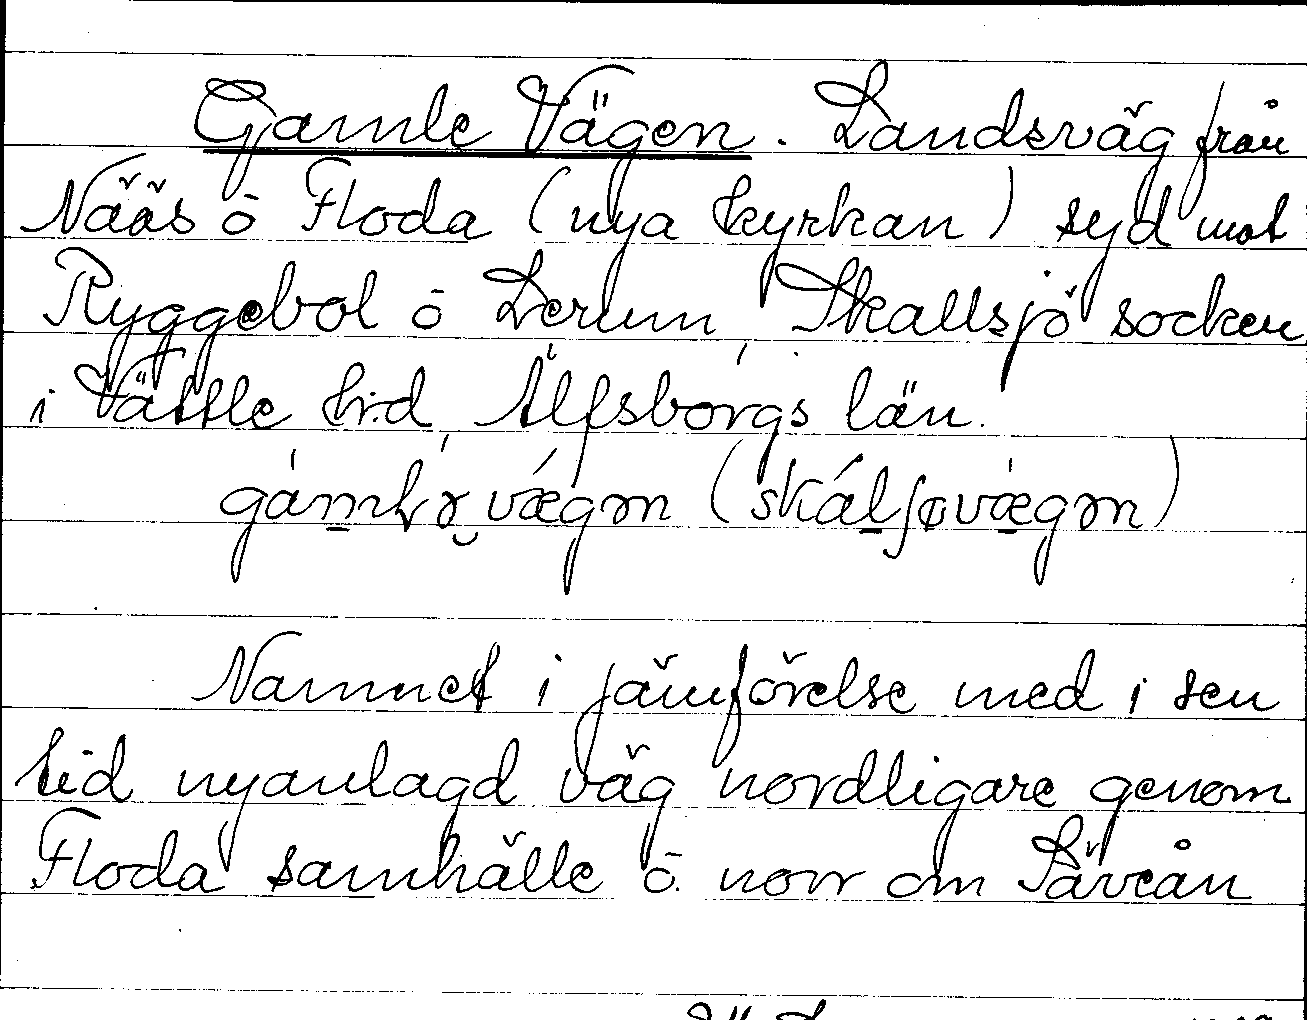 Gamle Vägen. Landsväg från
Nääs o Floda (nya kyrkan) syd mot
Ryggebol o Lerum, Skallsjö socken
i Vättle hrd, Älfsborgs län.
(skálʃøvægən)
Namnet i jämförelse med i sen
tid nyanlagd väg nordligare genom
Floda samhälle o. norr om Säveån